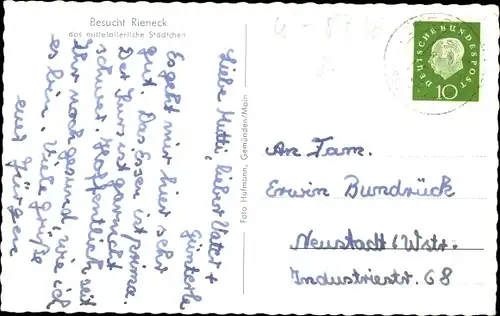 Besucht Rieneck
das mittelalterliche Städtchen
Liebe Mutti, lieber Vater +
Günterle
Es geht mir hier sehr
gut. Das Essen ist prima.
Der Kurs ist garnicht
schwer. Hoffentlich seit
Ihr noch gesund, wie ich
es bin. Viele Grüße
euer Jürgen
Foto Hofmann, Gemünden/Main
DEUTSCHE BUNDESPOST
10
An Fam.
Erwin Bundrück
Neustadt/Wstr.
Industriestr. 68